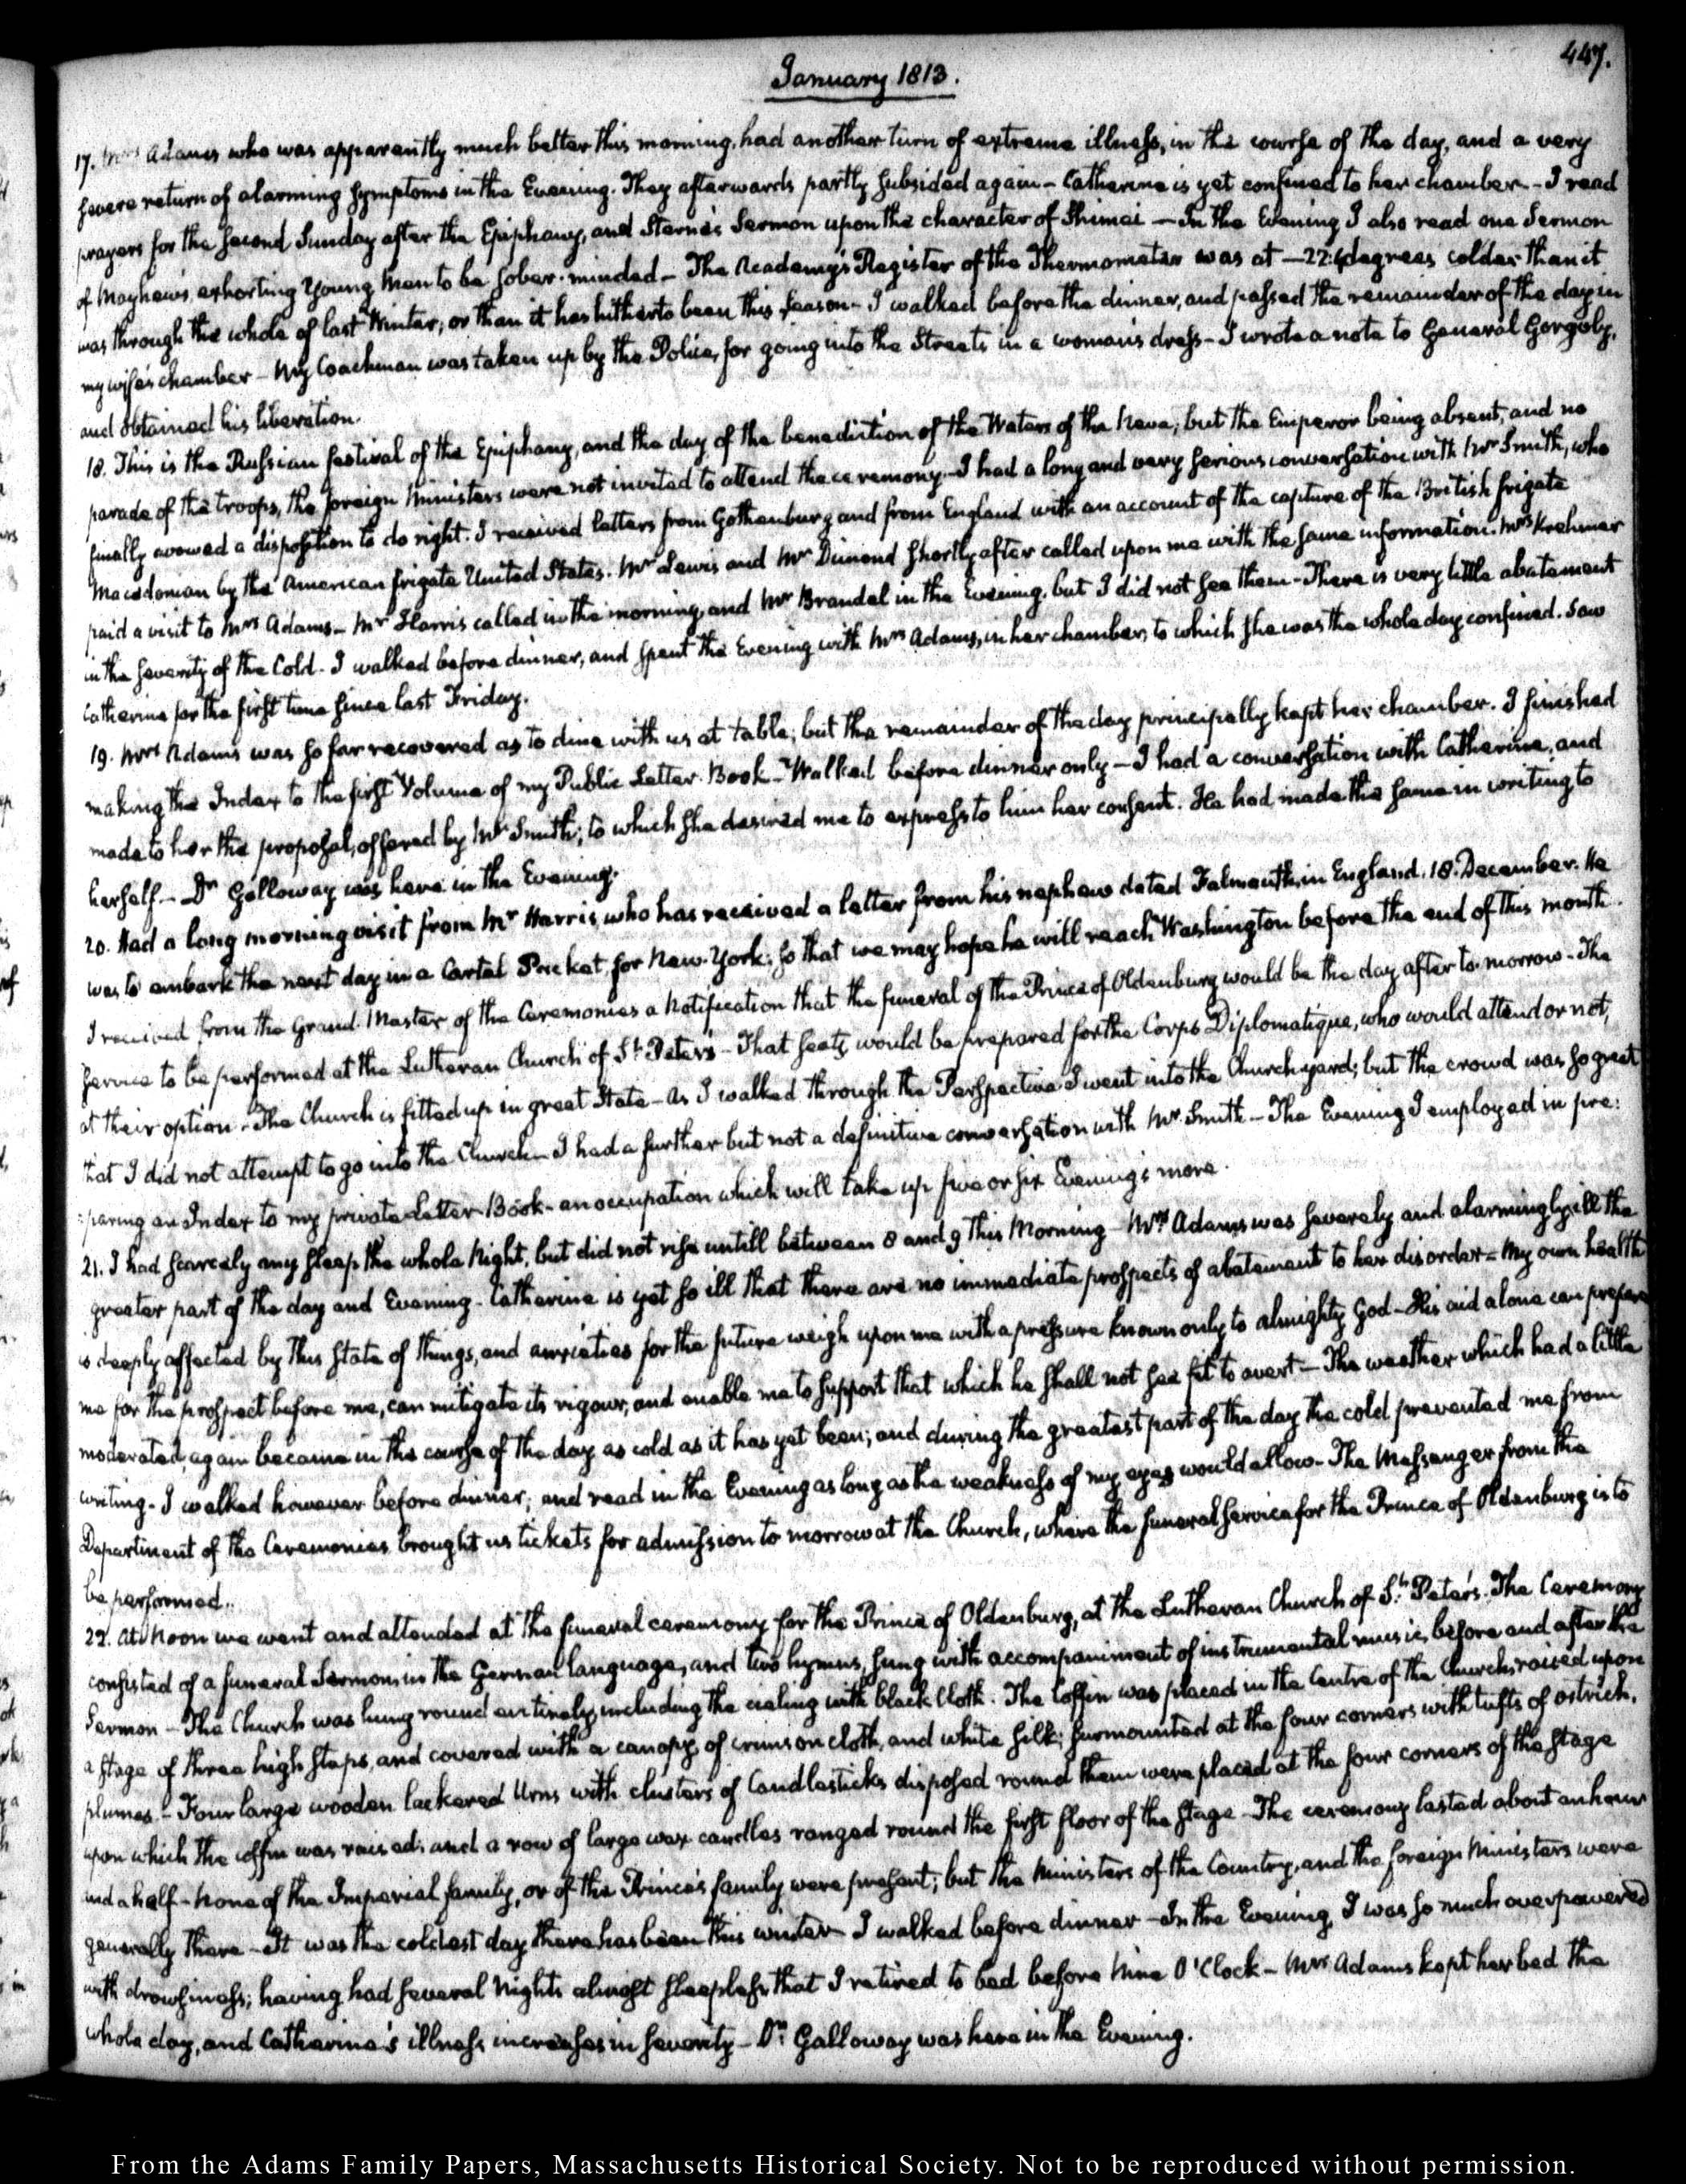 447.
January 1813.
17. Mrs Adams who was apparently much better this morning, had another turn of extreme illness, in the course of the day, and a very
severe return of alarming symptoms in the Evening. They afterwards partly subsided again – Catherine is yet confined to her chamber – I read
prayers for the second Sunday after the Epiphany, and Sterne's Sermon upon the character of Shimei – In the Evening I also read one Sermon
of Mayhew's, exhorting Young Men to be sober-minded – The Academy's Register of the Thermometer was at –22:4 degrees colder than it
was through the whole of last Winter, or than it has hitherto been this season – I walked before the dinner, and passed the remainder of the day in
my wife's chamber – My Coachman was taken up by the Police, for going into the Streets in a woman's dress – I wrote a note to General Gorgoly,
and obtained his liberation.
18. This is the Russian festival of the Epiphany, and the day of the benediction of the Waters of the Neva; but the Emperor being absent, and no
parade of the troops, the foreign Ministers were not invited to attend the ceremony – I had a long and very serious conversation with Mr Smith, who
finally avowed a disposition to do right. I received letters from Gothenburg and from England with an account of the capture of the British frigate
Macedonian by the American frigate United States. Mr Lewis and Mr Dimond shortly after called upon me with the same information. Mrs Krehmer
paid a visit to Mrs Adams – Mr Harris called in the morning, and Mr Brandel in the Evening, but I did not see them – There is very little abatement
in the severity of the Cold. I walked before dinner, and spent the Evening with Mrs Adams, in her chamber, to which she was the whole day confined. Saw
Catherine for the first time since last Friday.
19. Mrs Adams was so far recovered as to dine with us at table; but the remainder of the day principally kept her chamber. I finished
making the Index to the first Volume of my Public Letter-Book – Walked before dinner only – I had a conversation with Catherine, and
made to her the proposal, offered by Mr Smith; to which she desired me to express to him her consent. He had made the same in writing to
herself. – Dr Galloway was here in the Evening.
20. Had a long morning visit from Mr Harris, who has received a letter from his nephew dated Falmouth, in England, 18. December. He
was to embark the next day in a Cartel Packet, for New-York: so that we may hope he will reach Washington before the end of this month.
I received from the Grand-Master of the Ceremonies a Notification that the funeral of the Prince of Oldenburg would be the day after to-morrow – The
service to be performed at the Lutheran Church of St Peter's – That seats would be prepared for the Corps Diplomatique, who would attend or not,
at their option. The Church is fitted up in great State – As I walked through the Perspective I went into the Church-yard; but the crowd was so great
that I did not attempt to go into the Church – I had a further but not a definitive conversation with Mr Smith – The Evening I employed in pre:
:paring an Index to my private Letter-Book – an occupation which will take up five or six Evening's more.
21. I had scarcely any sleep the whole Night, but did not rise untill between 8 and 9 this Morning – Mrs Adams was severely and alarmingly ill the
greater part of the day and Evening – Catherine is yet so ill that there are no immediate prospects of abatement to her disorder – My own health
is deeply affected by this state of things, and anxieties for the future weigh upon me with a pressure known only to almighty God – His aid alone can prepare
me for the prospect before me, can mitigate its rigour, and enable me to support that which he shall not see fit to avert – The weather which had a little
moderated, again became in the course of the day as cold as it has yet been; and during the greatest part of the day the cold prevented me from
writing – I walked however before dinner; and read in the Evening as long as the weakness of my eyes would allow – The Messenger from the
Department of the Ceremonies brought us tickets for admission to morrow at the Church, where the funeral service for the Prince of Oldenburg is to
be performed.
22. At Noon we went and attended at the funeral ceremony for the Prince of Oldenburg, at the Lutheran Church of St Peter's. The Ceremony
consisted of a funeral Sermon in the German language, and two hymns, sung with accompaniment of instrumental music, before and after the
Sermon – The Church was hung round entirely, including the cieling with black Cloth. The Coffin was placed in the Centre of the Church, raised upon
a stage of three high steps, and covered with a canopy of crimson cloth, and white silk; surmounted at the four corners with tufts of ostrich,
plumes. – Four large wooden lackered Urns with clusters of Candlesticks disposed round them were placed at the four corners of the stage
upon which the coffin was raised; and a row of large wax candles ranged round the first floor of the stage – The ceremony lasted about an hour
and a half – None of the Imperial family, or of the Prince's family were present; but the Ministers of the Country, and the foreign Ministers were
generally there – It was the coldest day there has been this winter – I walked before dinner – In the Evening, I was so much overpowered
with drowsiness; having had several Nights almost sleepless, that I retired to bed before Nine O'Clock – Mrs Adams kept her bed the
whole day, and Catherine's illness increases in severity – Dr Galloway was here in the Evening.
From the Adams Family Papers, Massachusetts Historical Society. Not to be reproduced without permission.